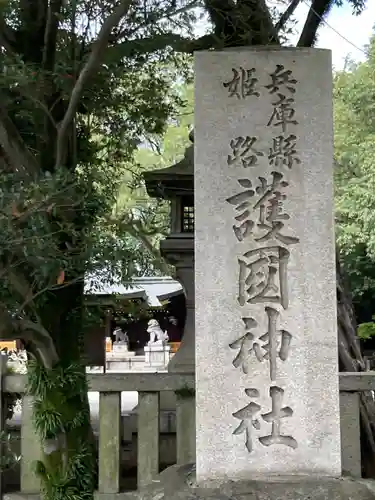 兵庫縣
姫路
護國神社